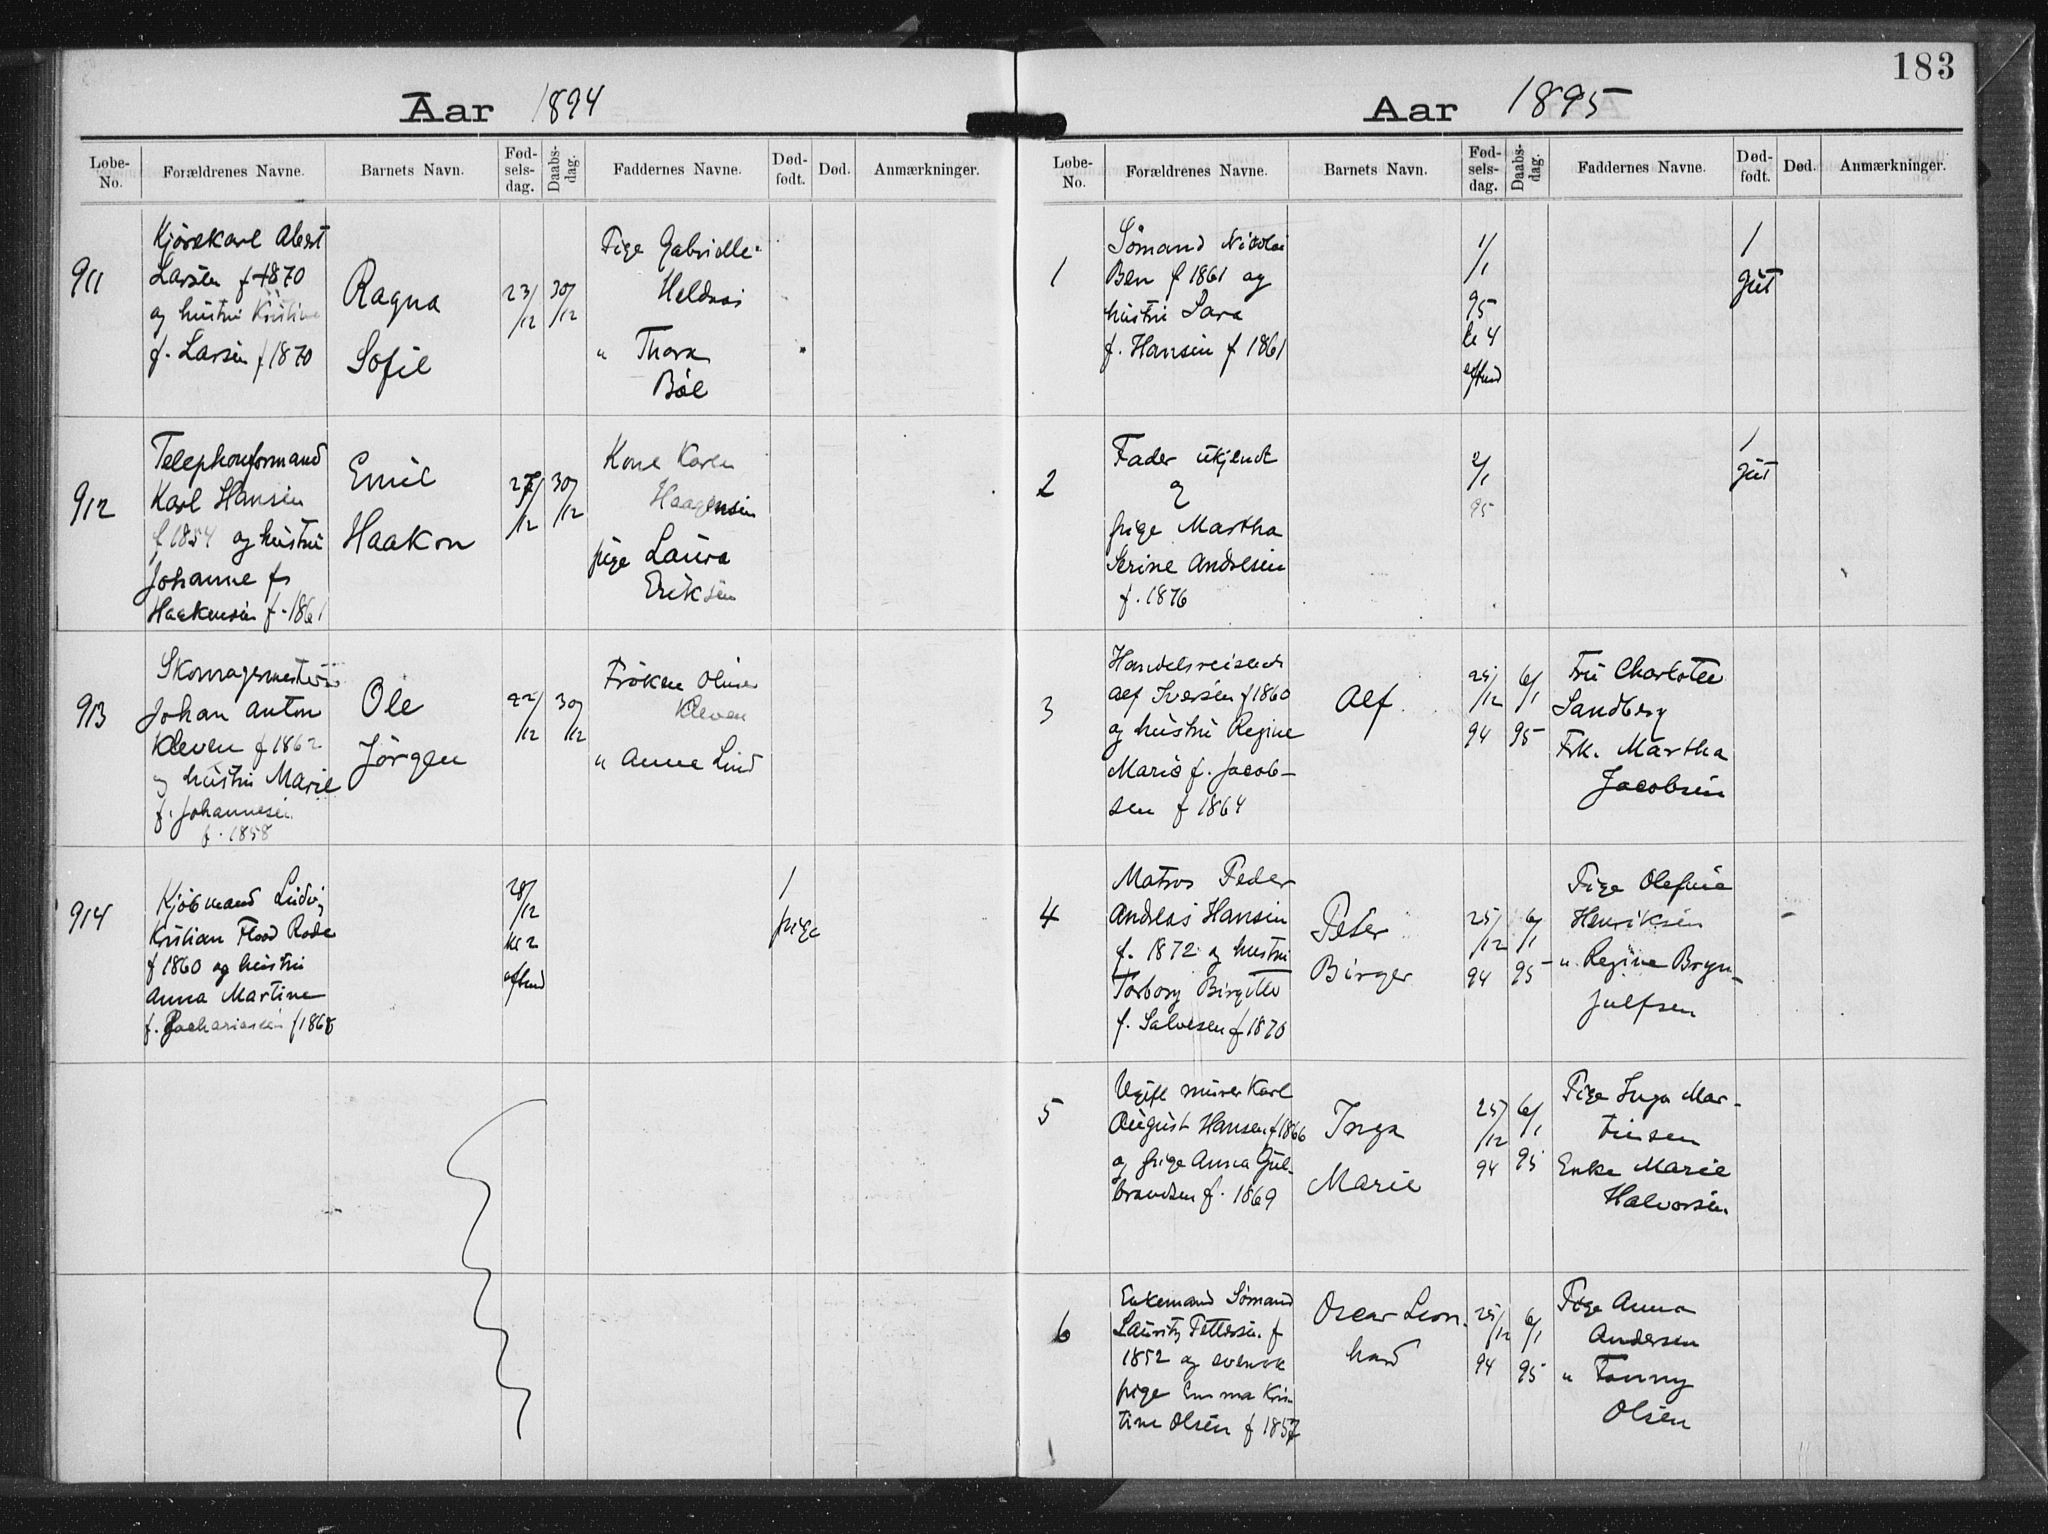 183
Aar 1894
Løbe-No. Forældrenes Navne. Barnets Navn. Fød-selsdag. Daabs-dag. Faddernes Navne. Død-født. Død. Anmærkninger.
911
Kjørekarl Albert
Larsen f 1870
og hustru Kristine
f. Larsen f 1870
Ragna
Sofie
23/12
30/12
Pige Gabrielle
„ Thora
Bøe
912
Telephonformand
Karl Hansen
f 1854 og hustru
Johanne f.
Haakensen f. 1861
Emil
Haakon
27/12
30/12
Kone Karen
Haagensen
pige Laura
Eriksen
913
Skomagermester
Johan Anton
Kleven f 1862
og hustru Marie
f. Johannesen
f. 1858
Ole
Jørgen
22/12
30/12
Frøken Oline
Kleven
„ Anna Lind
914
Kjøbmand Ludvig
Kristian Flood Rode
f 1860 og hustru
Anna Martine
f. Zachariasen f 1868
28/12
kl 2
eftmd
1
pige
Aar 1895
Løbe-No. Forældrenes Navne. Barnets Navn. Fød-selsdag. Daabs-dag. Faddernes Navne. Død-født. Død. Anmærkninger.
1
Sømand Nicolai
Ben f 1861 og
hustru Sara
f. Hansen f 1861
1/1
95
kl 4
eftmd
1
gut
2
Fader ukjendt
&
pige Martha
Serine Andresen
f. 1876
2/1
95
1
gut
3
Handelsreisende
Alf Iversen f 1860
og hustru Regine
Marie f. Jacob-
sen f 1864
Alf.
25/12
94
6/1
95
Fru Charlotte
Sandberg
Frk. Martha
Jacobsen
4
Matros Peder
Andreas Hansen
f. 1872 og hustru
Torborg Birgitte
f. Salvesen f 1870
Peter
Birger
25/12
94
6/1
95
Pige Olefine
Henriksen
„ Regine Bryn-
julfsen
5
Ugift murer Karl
August Hansen f 1866
og pige Anna Gul-
brandsen f. 1869
Inga
Marie
25/12
94
6/1
95
Pige Inga Mar-
tinsen
Enke Marie
Halvorsen
6
Enkemand Sømand
Lauritz Pettersen f
1852 og svensk
pige Emma Kris
tine Olsen f 1857
Oscar Leon.
hard
25/12
94
6/1
95
Pige Anna
Andersen
„ Fanny
Olsen